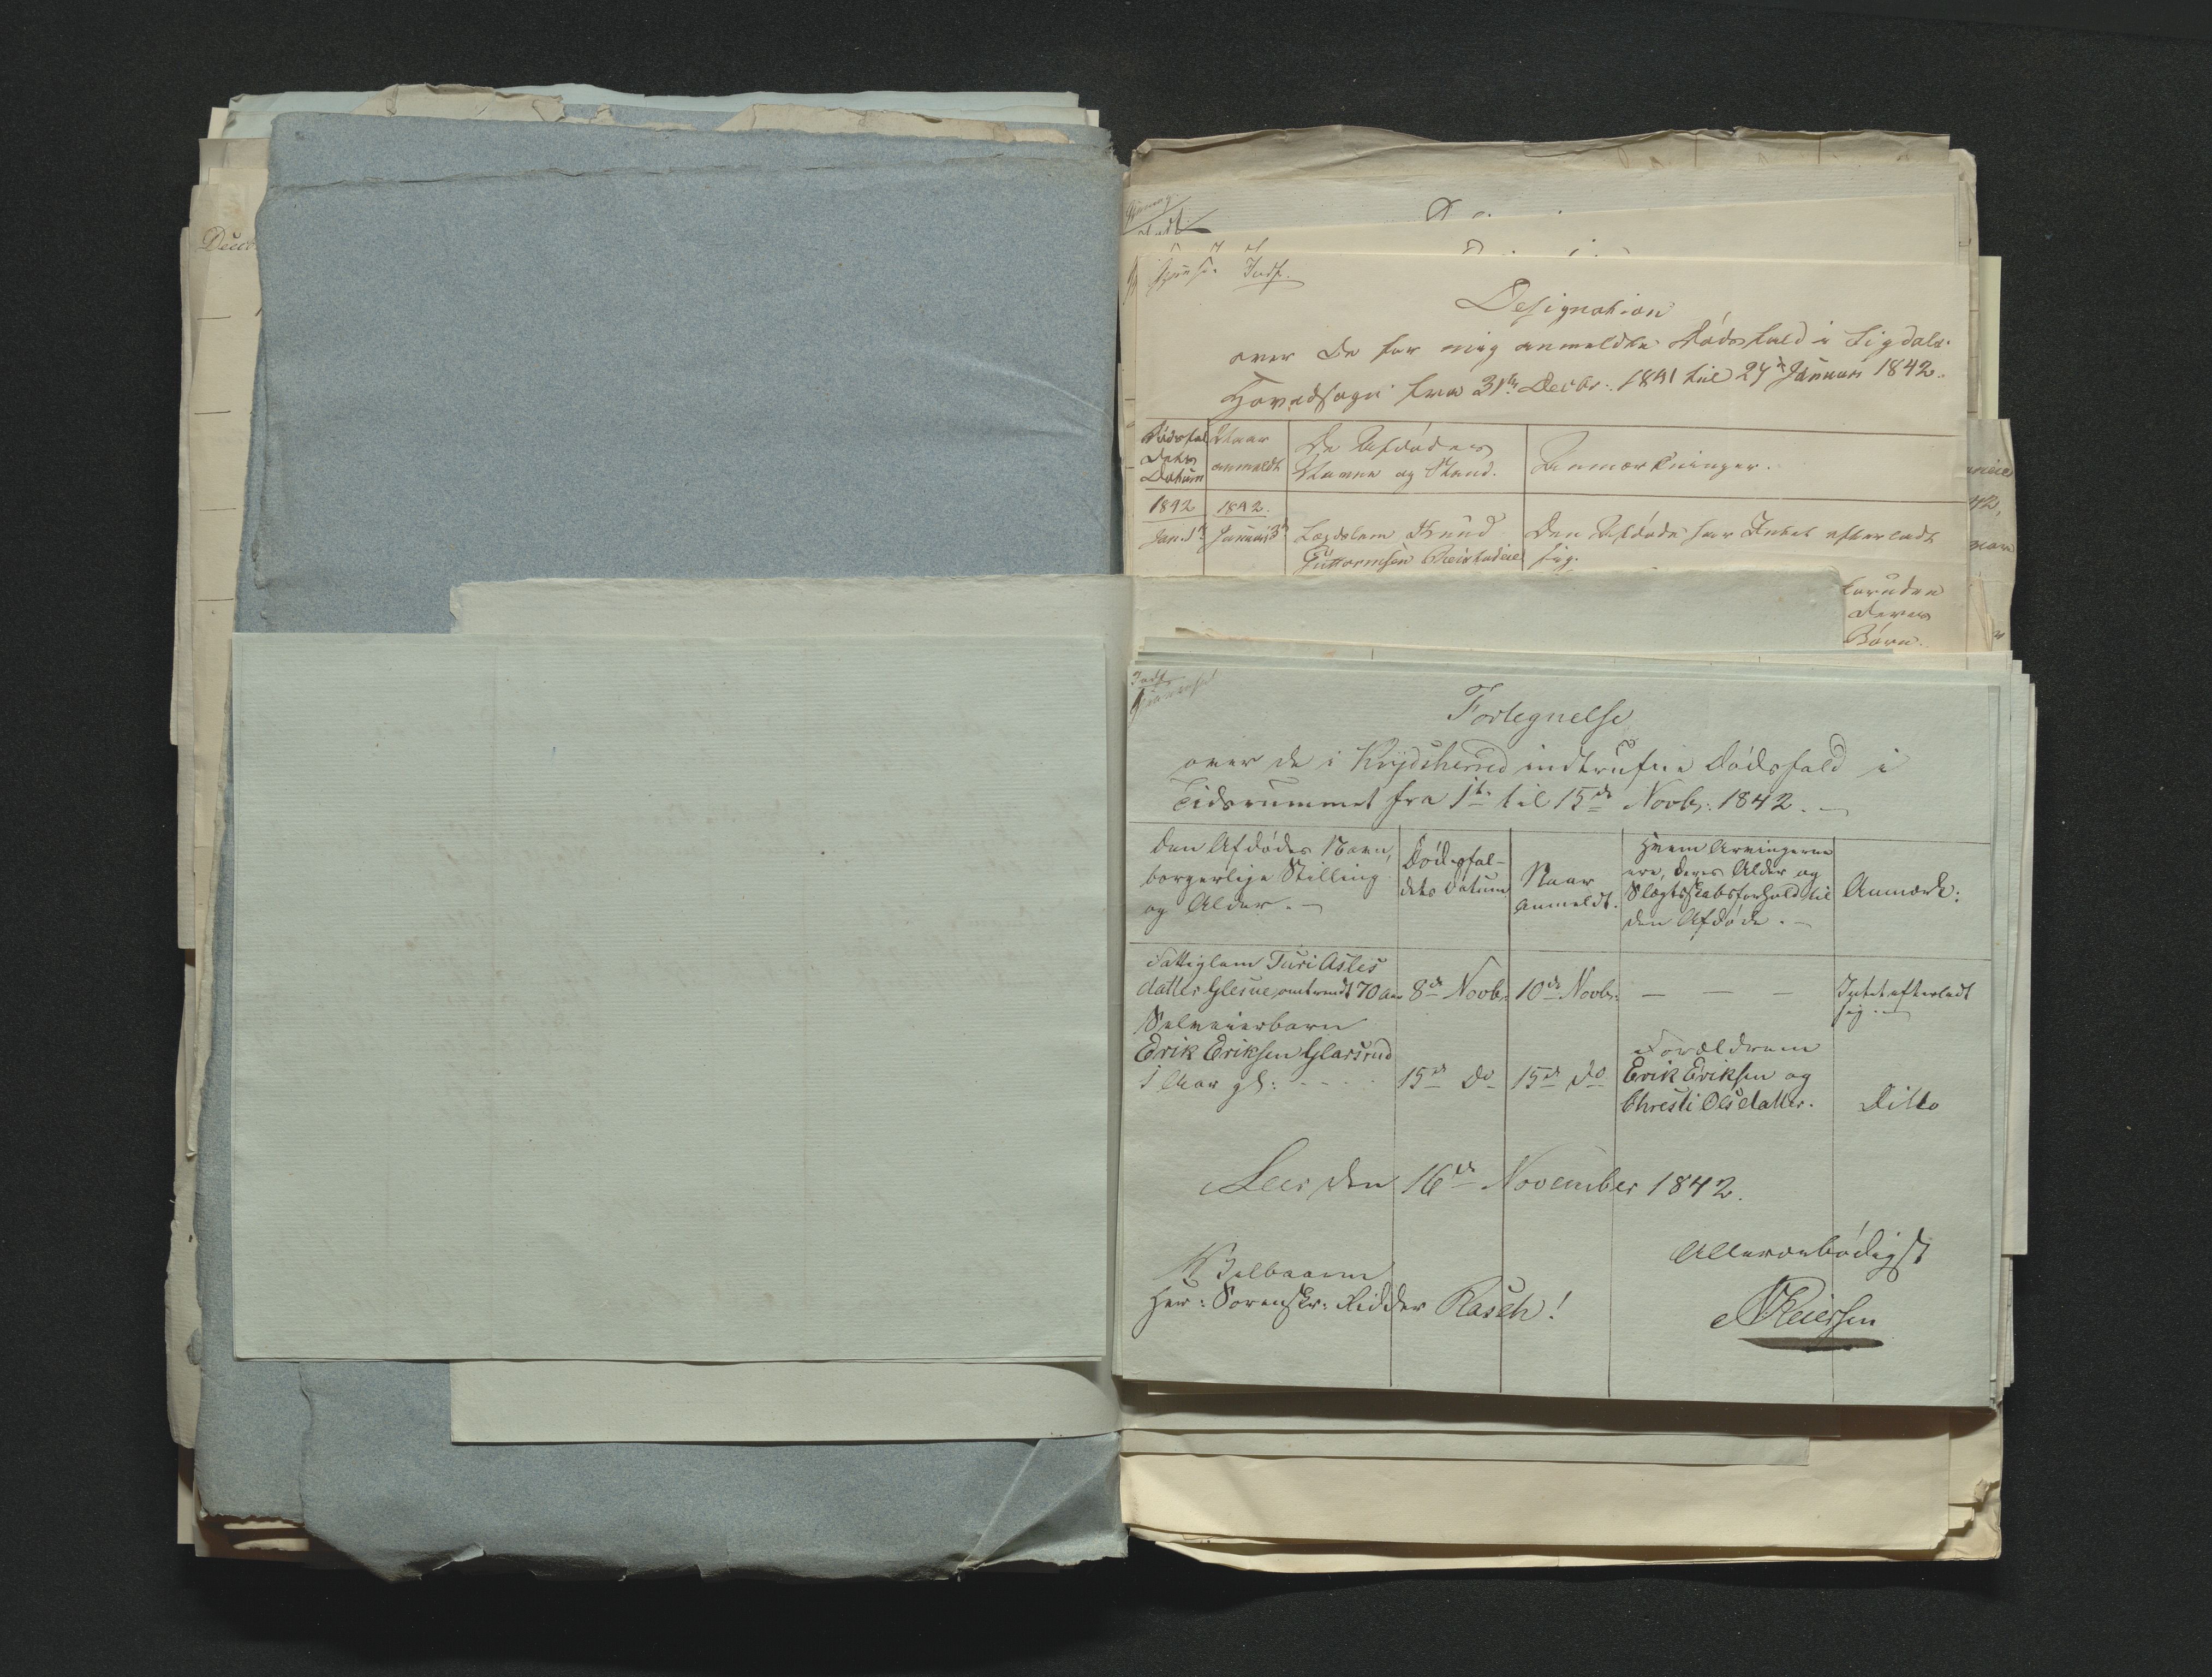 Decbr
Designation
over de for mig anmeldte Dødsfald i Sigdals
Hovedsogn fra 31te Decbr. 1841 til 27de Januari 1842.
Dødsfal
dets
Datum
Naar
anmeldt
De Afdødes
Navne og Stand.
Anmærkninger.
1842
1842.
Jan. 1te
Januari 3de
Lægdslem Knud
Guttormsen
Den Afdøde har Intet efterladt
sig.
deres
Børn.
Indf.
Fortegnelse
over de i Krydsherred indtrufne Dødsfald i
Tidsrummet fra 1te til 15de Novbr: 1842.
Den Afdødes Navn,
borgerlige Stilling
og Alder.
Dødsfal-
dets Datum
Naar
anmeldt.
Hvem Arvingerne
ere, deres Alder og
Slægtskabsforhold til
den Afdøde.
Anmærk:
Fattiglem Turi Asles
datter Glesne, omtrendt 70 Aar
8de Novbr:
10de Novbr:
— — —
Intet efterladt
sig.
Selveierbarn
Erik Eriksen Glarsrud
1 Aar gl:
15de Do
15de Do
Forældrene
Erik Eriksen og
Christi Olsdatter.
Ditto
Leer den 16de November 1842.
Allerærbødigst
Velbaarne
Herr: Sorenskr: Ridder Rasch!
N Reiersen